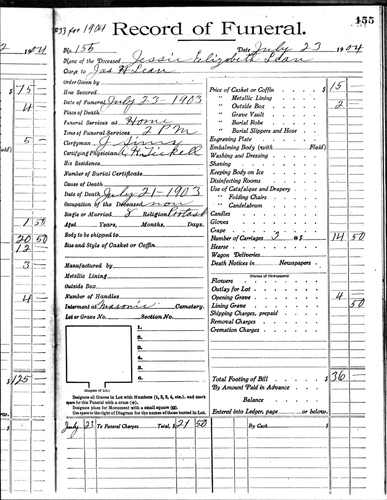 #33 for 1904
Record of Funeral.
155
2 1904
No. 155 Date July 23 1904
Name of the Deceased Jessie Elizabeth
Charge to Jas H
Order Given by
How Secured
Date of Funeral July 23 - 1903
Place of Death
Funeral Services at Home
Time of Funeral Services 2 PM
Clergyman J Sims
Certifying Physician H Tickell
His Residence
Number of Burial Certificate
Cause of Death
Date of Death July 21 - 1903
Occupation of the Deceased none
Single or Married S Religion Protest
Aged Years, Months, Days.
Body to be shipped to
Size and Style of Casket or Coffin
Manufactured by
Metallic Lining
Outside Box
Number of Handles
Interment at Masonic Cemetery.
Lot or Grave No. Section No.
1.
2.
3.
4.
5.
6.
(Diagram of Lot.)
Designate all Graves in Lot with Numbers (1, 2, 3, 4, etc.), and mark
space for this Funeral with a cross (+).
Designate place for Monument with a small square
Use space to the right of Diagram for the names of those buried in Lot.
July 23 To Funeral Charges Total, $ 21 50
Price of Casket or Coffin $ 15
" Metallic Lining
" Outside Box 2
" Grave Vault
" Burial Robe
" Burial Slippers and Hose
Engraving Plate
Embalming Body (with Fluid)
Washing and Dressing
Shaving
Keeping Body on Ice
Disinfecting Rooms
Use of Catafalque and Drapery
" Folding Chairs
" Candelabrum
Candles
Gloves
Crape
Number of Carriages 3 @ $ 14 50
Hearse
Wagon Deliveries
Death Notices in Newspapers
(Names of Newspapers)
Flowers
Outlay for Lot
Opening Grave 4
Lining Grave 50
Shipping Charges, prepaid
Removal Charges
Cremation Charges
Total Footing of Bill $ 36
By Amount Paid in Advance
Balance
Entered into Ledger, page or below.
By Cash $
$ 75
4
5
Fluid)
1 50
20 50
12
3
4
$ 125